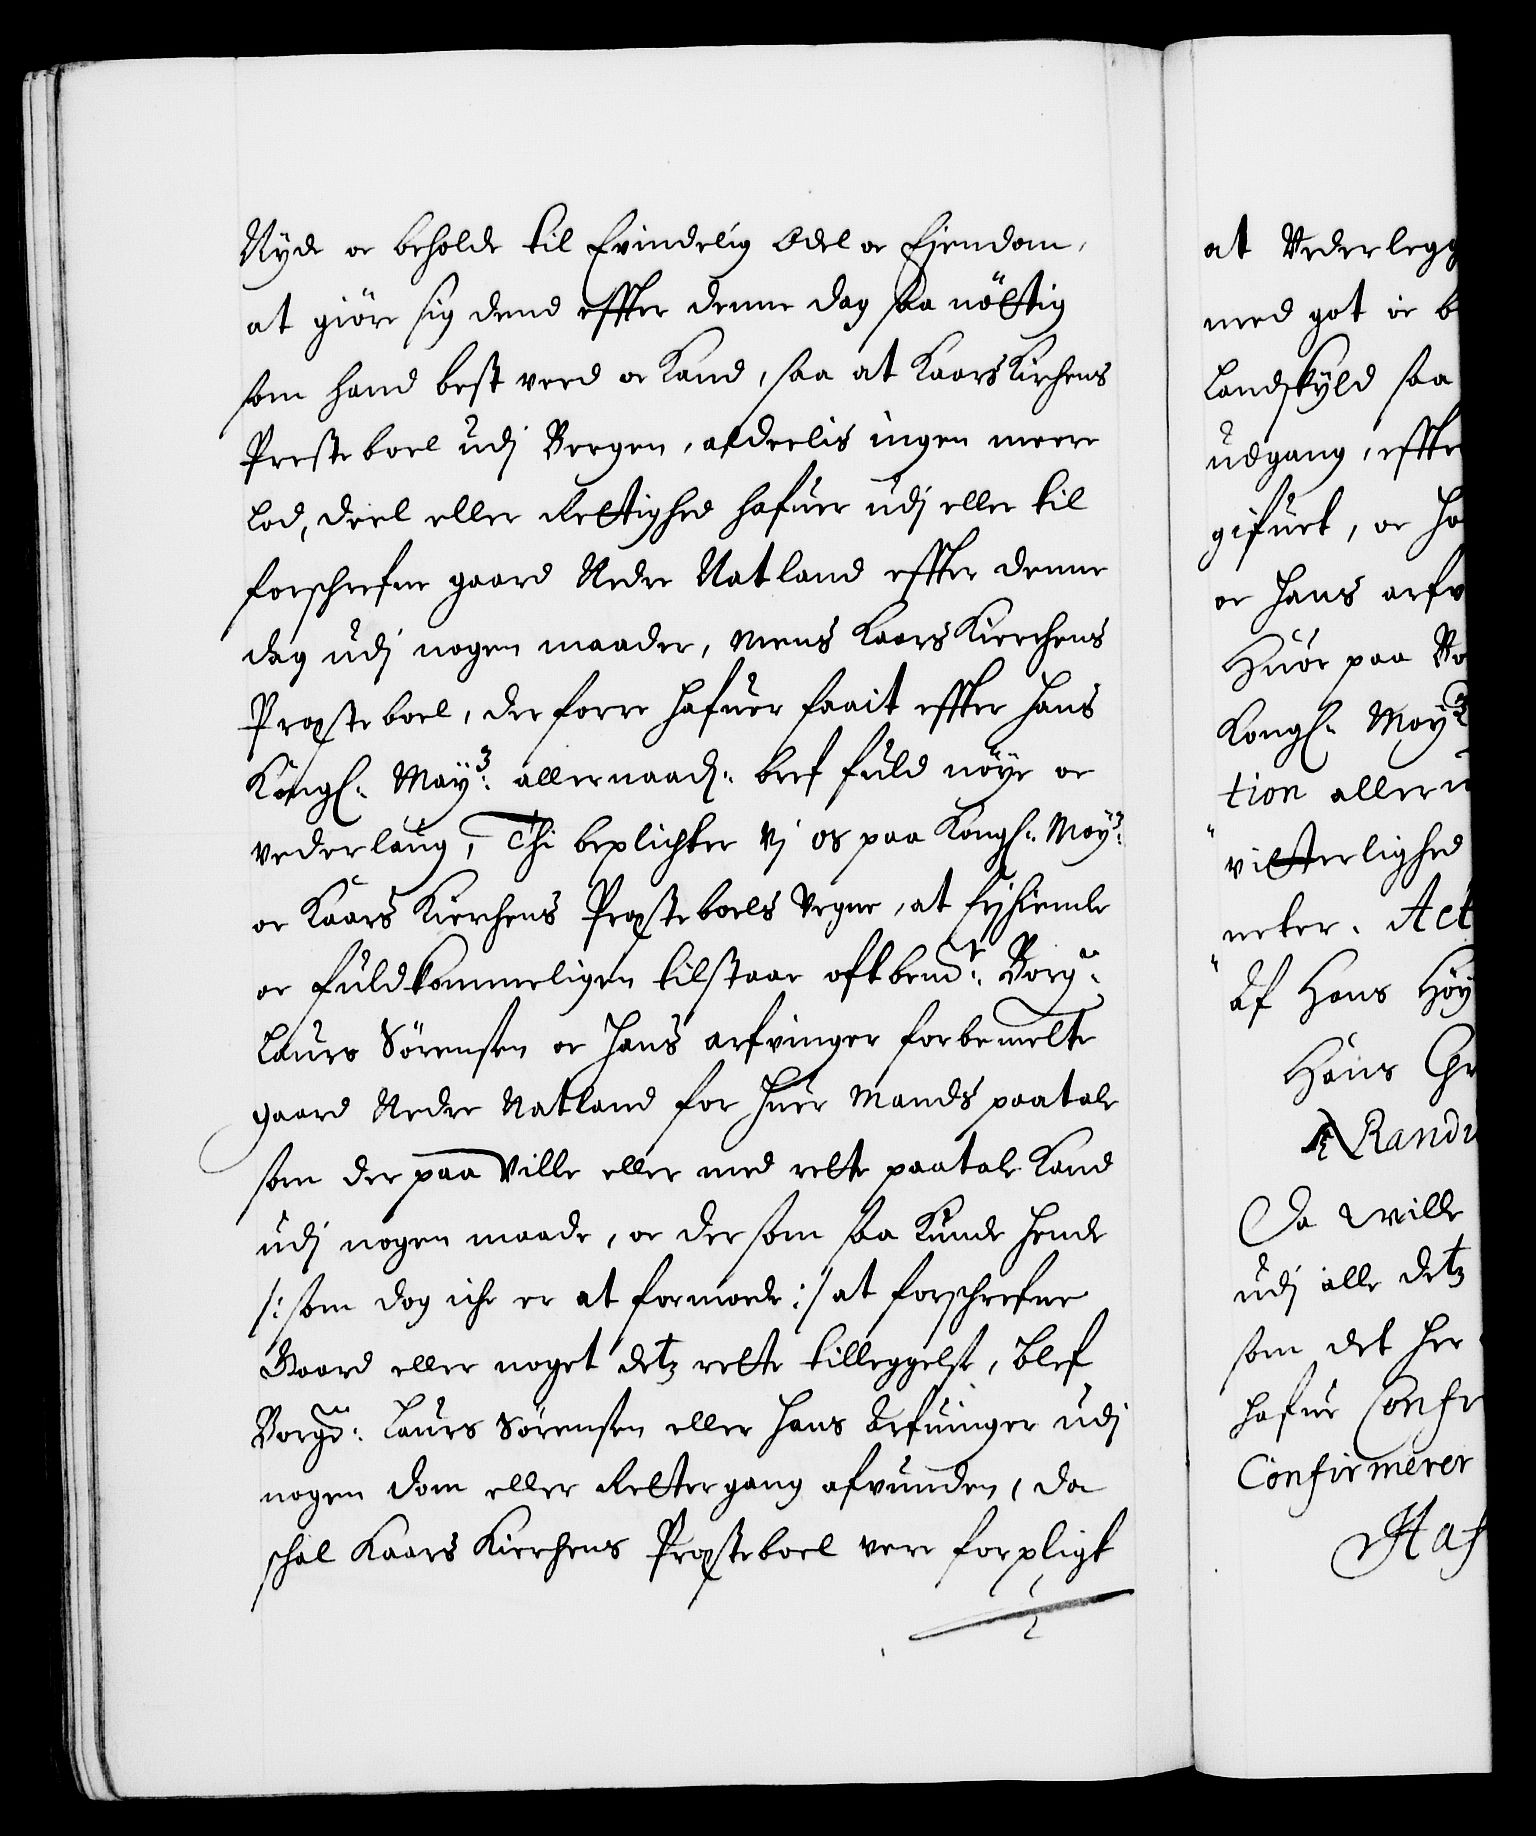 Nÿde oc beholde til Evindelig Odel oc Eiendom,
at giöre sig dend effter denne dag saa nöttig
som hand best veed oc Kand, saa at Kaars Kirchens
Presteboel udj Bergen, aldeelis ingen meere
lod, deel eller Rettighed hafuer udj eller til
forschrefne gaard Nedre Natland effter denne
dag udj nogen maader, mens Kaars Kierchens
Præsteboel, der forre hafuer faait effter hans
Kongl: Maÿ: allernaad: bref fuld nöÿe oc
vederlaug, Thi beplichter Vj os paa Kongl: Maÿ:
oc Kaars Kierchens Præsteboels Vegne, at Frj hiemle
oc fuldkommeligen tilstaar oftbemdt: Borg:
Laurs Sörensen oc hans arfvinger forbemelte
gaard Nedre Natland for huer Mands paatale
som der paa Ville eller med rette paatale Kand
udj nogen maade, oc der som saa Kunde hende
/: som dog iche er at formode :/ at forschrefne
Gaard eller noget detz rette tilleggelse, blef
Borg: Laurs Sörensen eller hans Arfuinger udj
nogen dom eller Rettergang afvunden, da
schal Kaars Kierchens Præsteboel vere forpligt
at Vederlegg
med got oc b
Landskÿld saa
udgang, effte
gifuet, oc ha
oc hans arfv
Huor paa Vo
Kongl: Maÿ:
tion alleru
vitterlighed
neker. Act
Af Hans Höÿ
Hans
Rand
Da Wille
udj alle detz
som det her
hafue Confi
Confirmerer
Haf